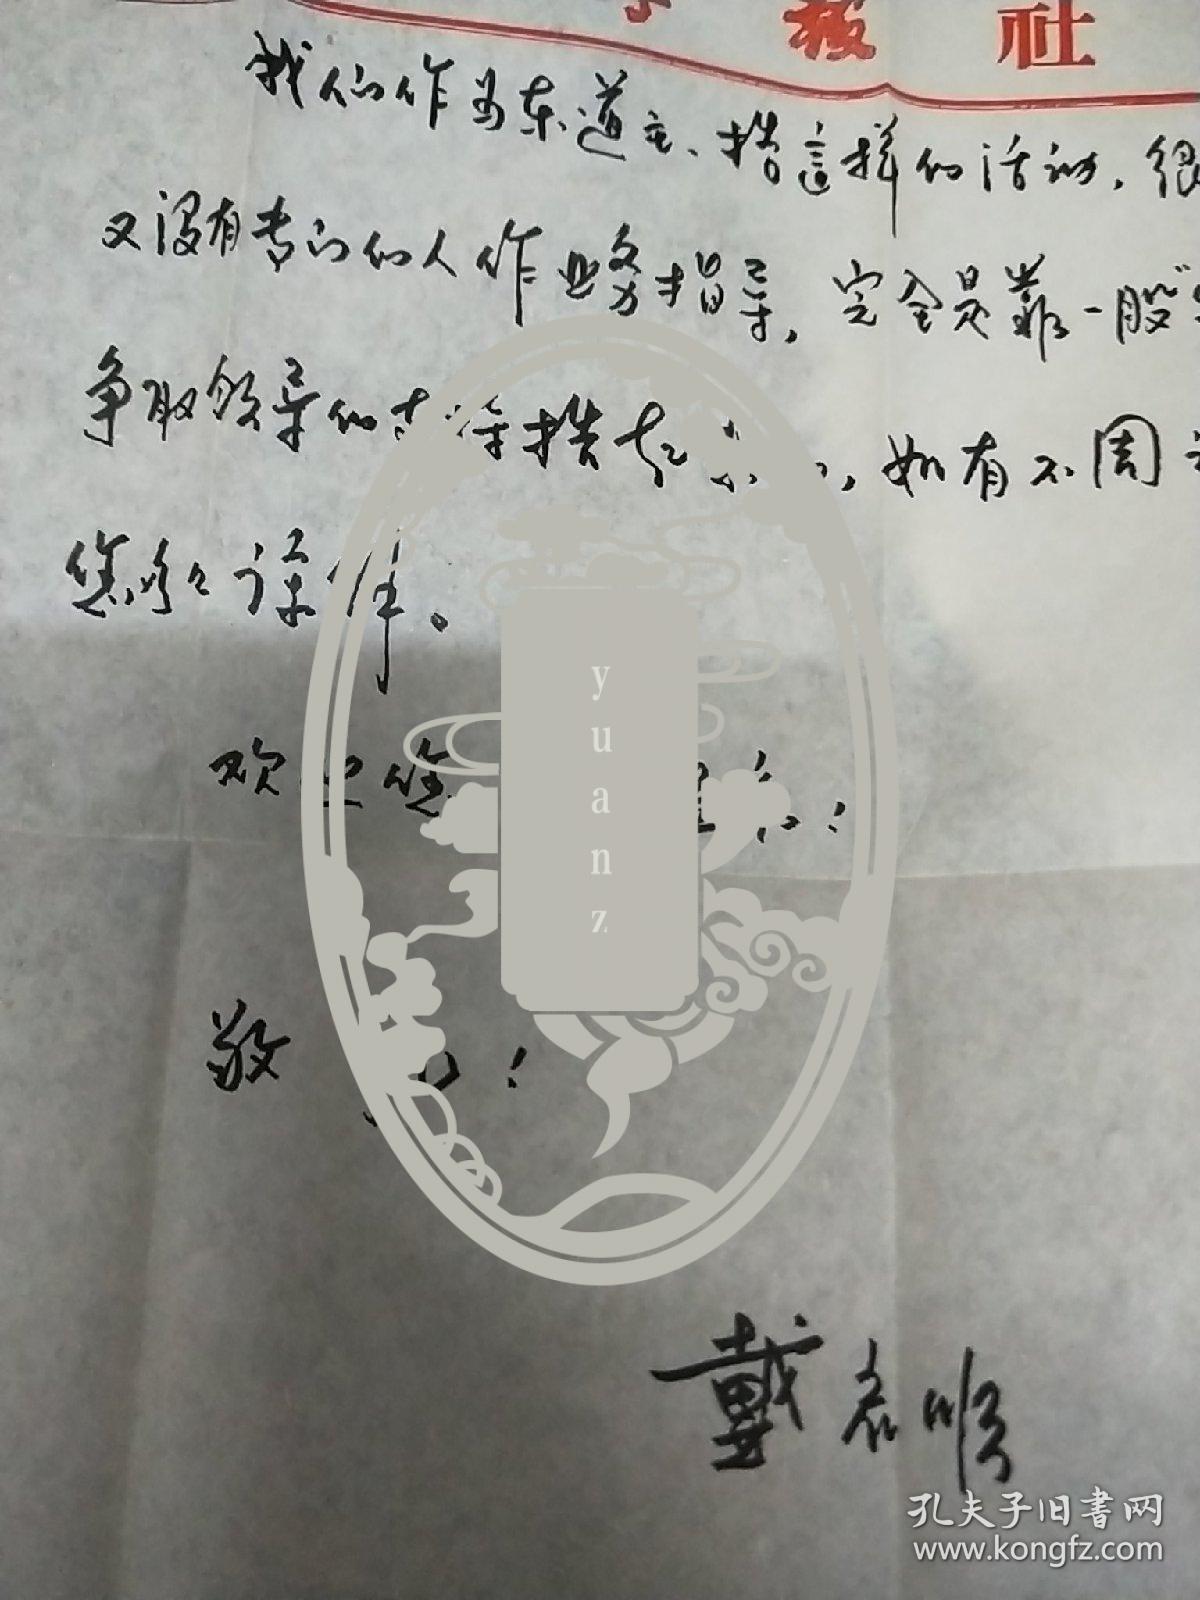 报社
我们作为东道主、搞这样的活动，很
又没有专门的人作业务指导，完全是靠一股
争取领导的支持搞起来的，如有不周
您多多谅解。
欢迎您
敬
！
戴
顺
yuanz
孔夫子旧书网
www.kongfz.com